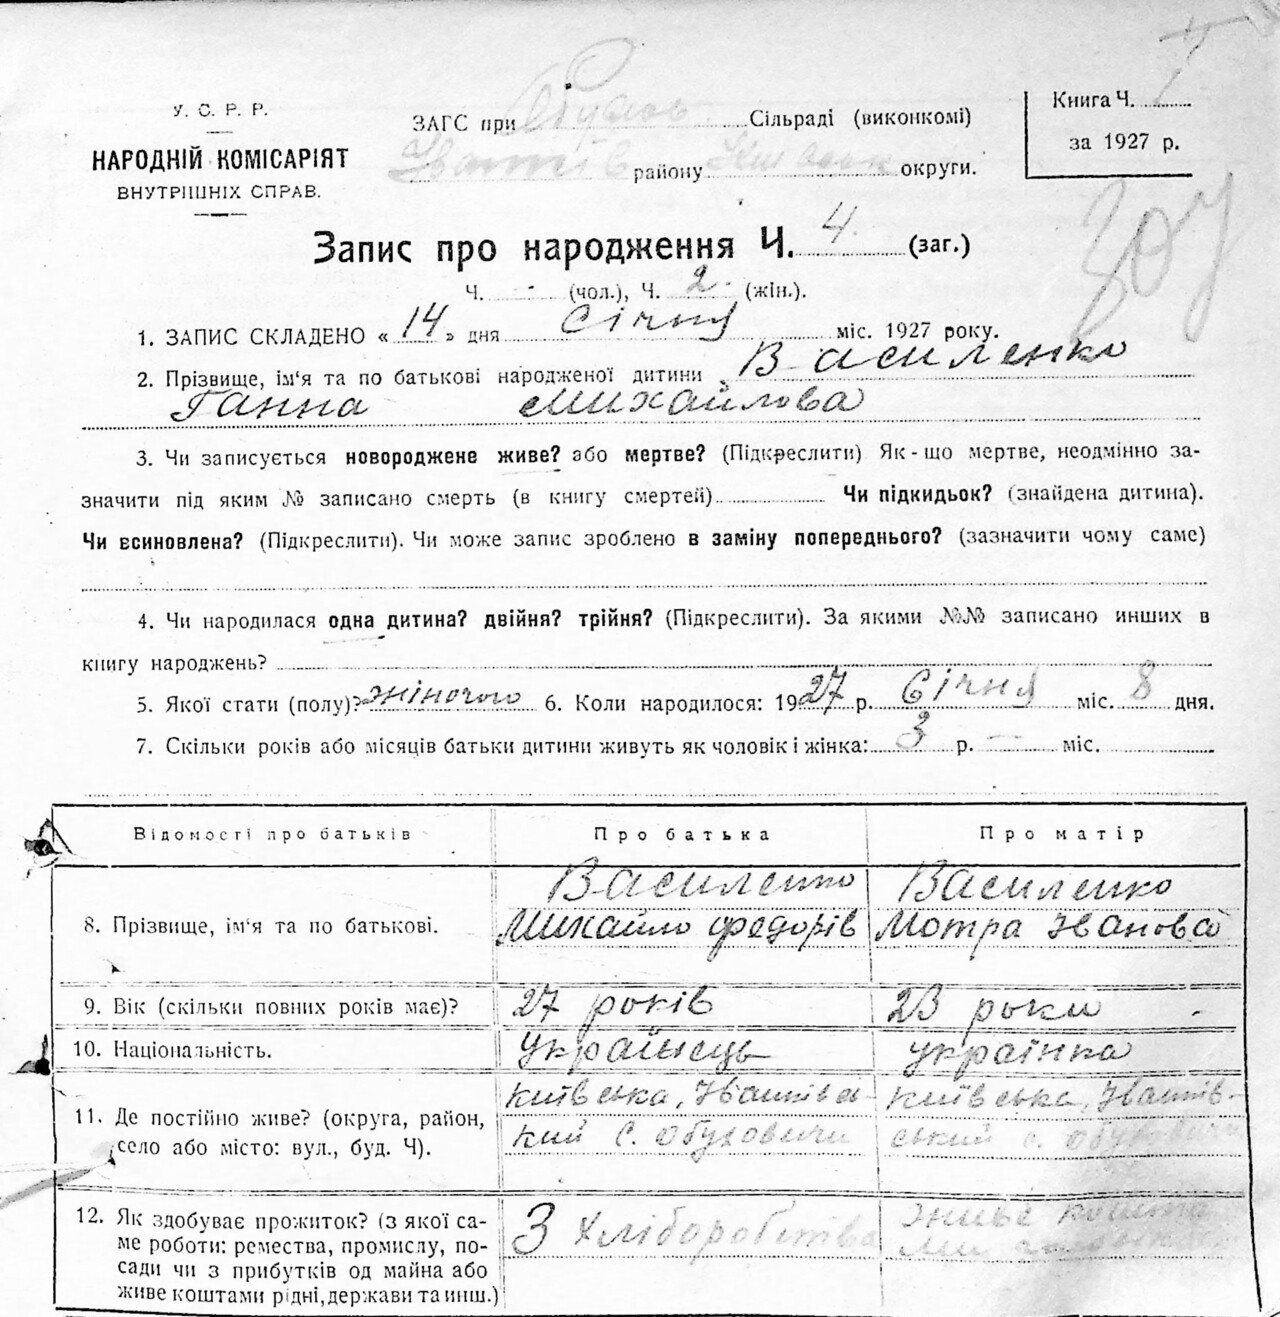 У. С. Р. Р.
НАРОДНІЙ КОМІСАРІЯТ
ВНУТРІШНІХ СПРАВ.
ЗАГС при Сільраді (виконкомі)
району округи.
Книга Ч. I
за 1927 р.
Запис про народження Ч. 4. (заг.)
Ч. - (чол.), Ч. 2. (жін.).
1. ЗАПИС СКЛАДЕНО «14» дня Січня міс. 1927 року.
2. Прізвище, ім'я та по батькові народженої дитини Василенко
Ганна Михайлова
3. Чи записується новороджене живе? або мертве? (Підкреслити) Як-що мертве, неодмінно за-
значити під яким № записано смерть (в книгу смертей) Чи підкидьок? (знайдена дитина).
Чи всиновлена? (Підкреслити). Чи може запис зроблено в заміну попереднього? (зазначити чому саме)
4. Чи народилася одна дитина? двійня? трійня? (Підкреслити). За якими №№ записано инших в
книгу народжень?
5. Якої стати (полу)? жіночого 6. Коли народилося: 1927 р. Січня міс. 8 дня.
7. Скільки років або місяців батьки дитини живуть як чоловік і жінка: 3 р. — міс.
Відомості про батьків Про батька Про матір
8. Прізвище, ім'я та по батькові. Василенко Михайло Федорів Василенко Мотра Іванова
9. Вік (скільки повних років має)? 27 років 23 роки
10. Національність. Українець Українка
11. Де постійно живе? (округа, район, Київська, Іванківсь- Київська, Іванків-
село або місто: вул., буд. Ч). кий с. Обуховичи ський с. Обуховичи
12. Як здобуває прожиток? (з якої са- З Хліборобства живе кошта
ме роботи: ремества, промислу, по- ми
сади чи з прибутків од майна або
живе коштами рідні, держави та инш.)